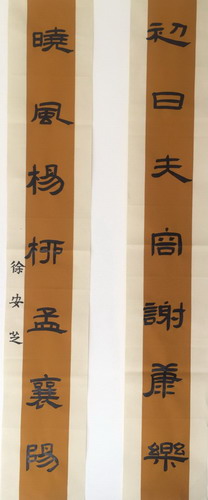 初日夫容謝康樂
曉風楊柳孟襄陽
徐安芝